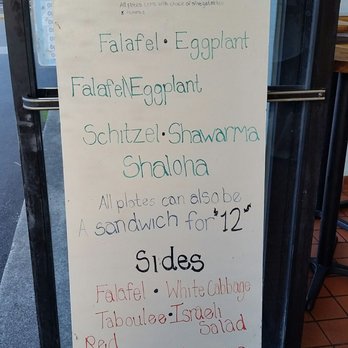 All plates come with choice of
Falafel • Eggplant
Falafel\Eggplant
Schitzel • Shawarma
Shaloha
All plates can also be
A sandwich for $12
Sides
Falafel • White Cabbage
Taboulee • Israeli
Salad
Red